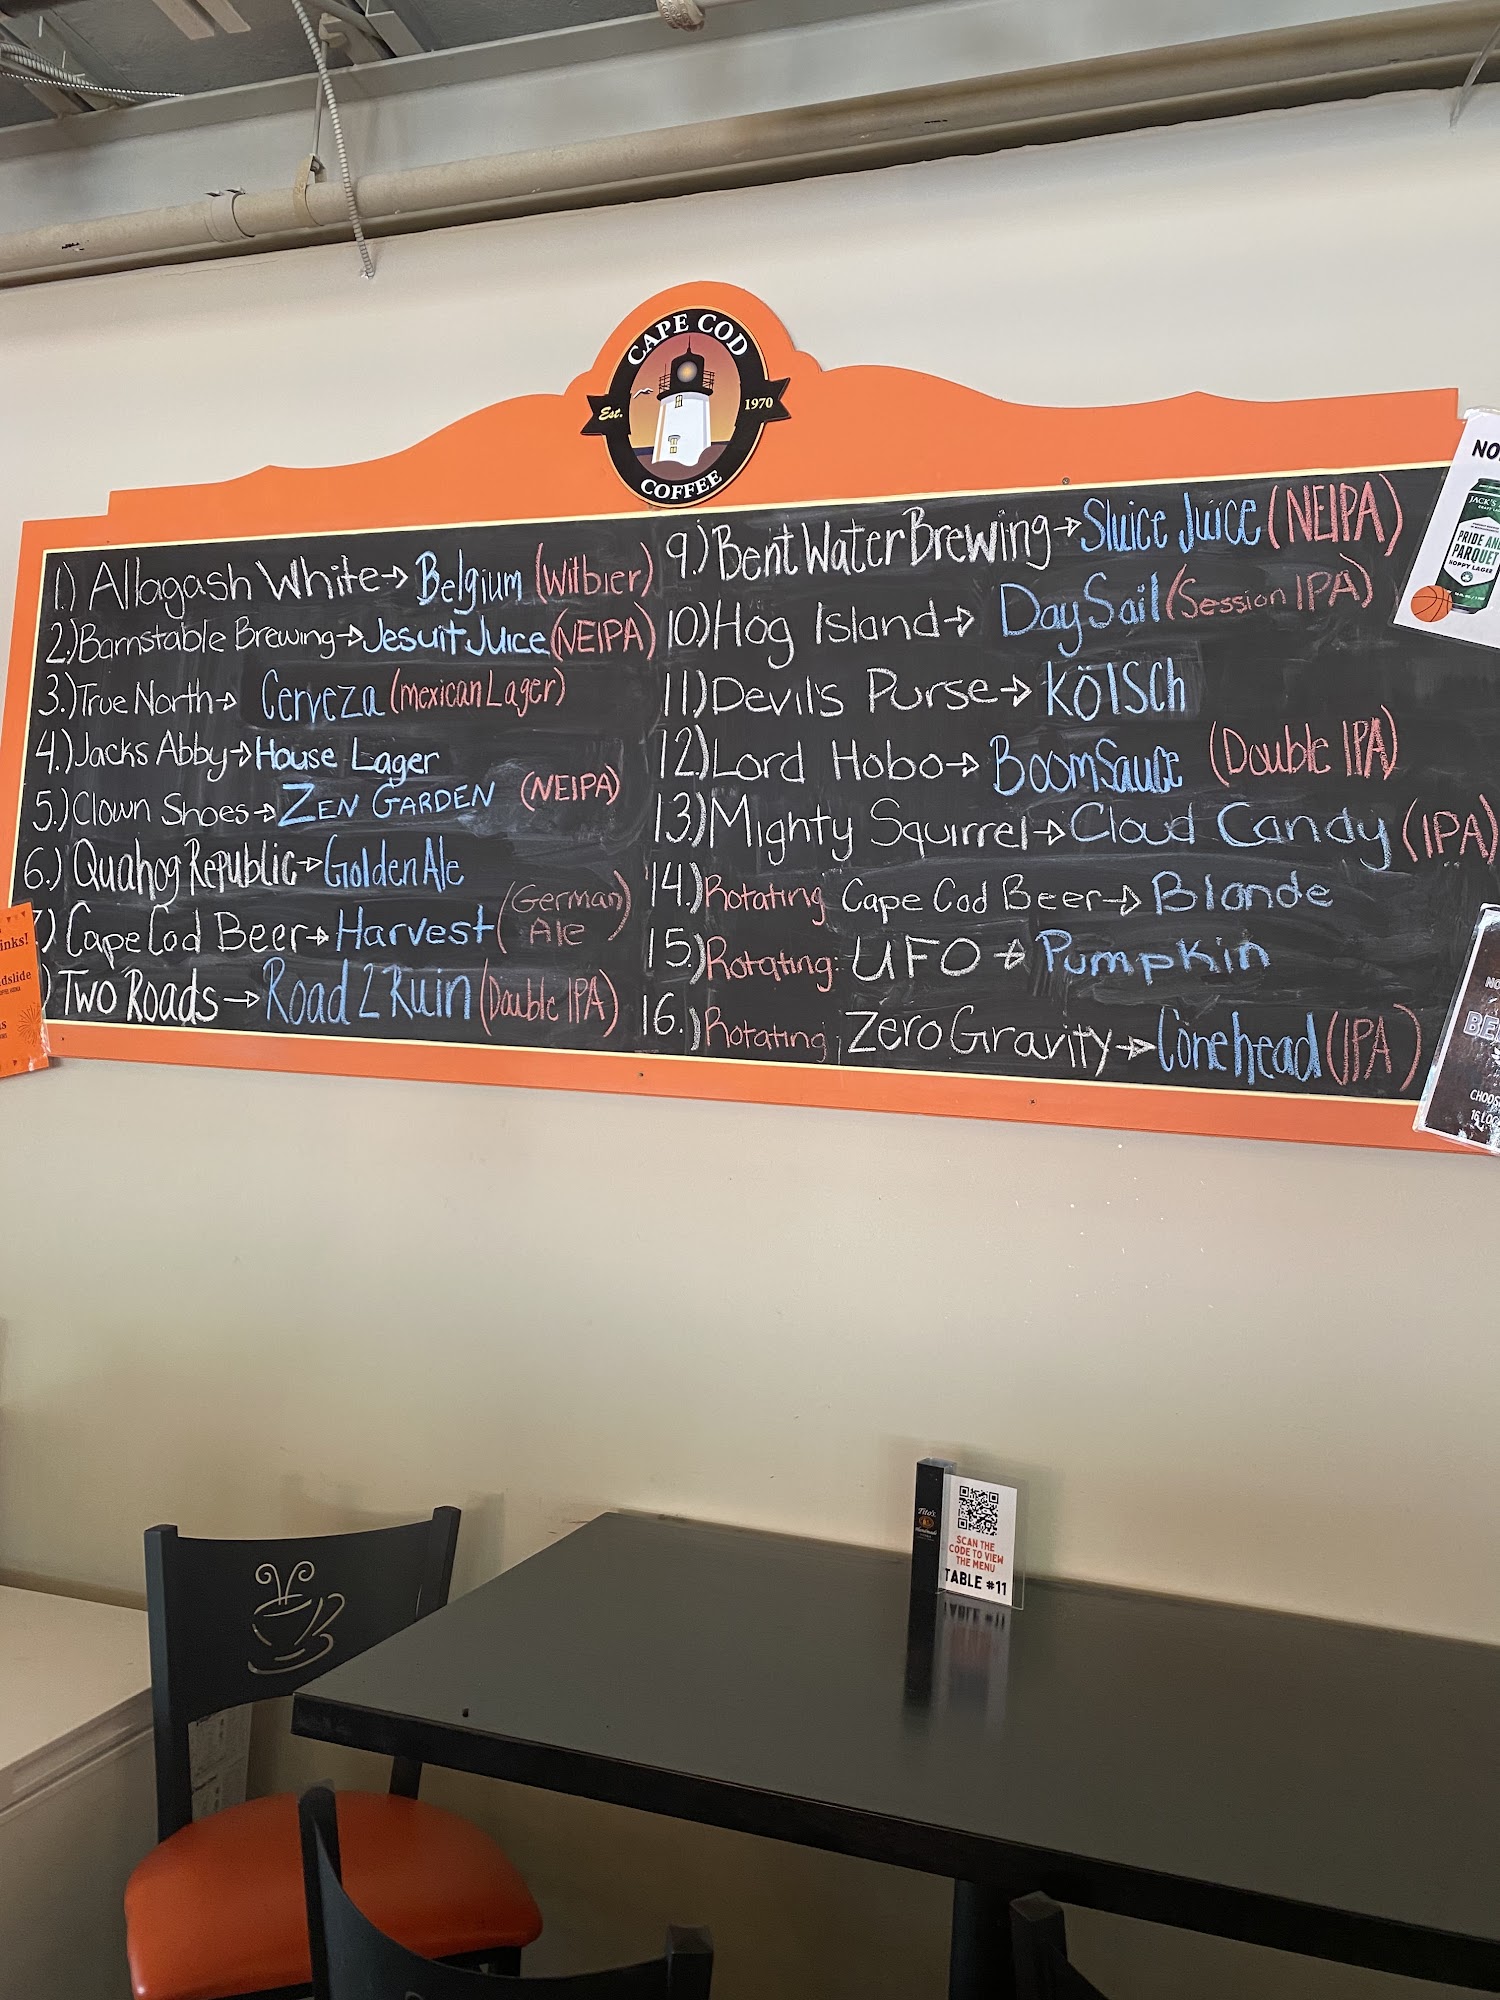 CAPE COD
Est. 1970
COFFEE
1.) Allagash White→ Belgium (Witbier)
2.) Barnstable Brewing→Jesuit Juice (NEIPA)
3.) True North→ Cerveza (mexican Lager)
4.) Jacks Abby→House Lager
5.) Clown Shoes→ ZEN GARDEN (NEIPA)
6.) Quahog Republic→Golden Ale
) Cape Cod Beer→ Harvest (German Ale)
) Two Roads→ Road 2 Ruin (Double IPA)
9.) Bent Water Brewing→ Sluice Juice (NEIPA)
10.) Hog Island→ Day Sail (Session IPA)
11.) Devil's Purse→ Kölsch
12.) Lord Hobo→ BoomSauce (Double IPA)
13.) Mighty Squirrel→ Cloud Candy (IPA)
14.) Rotating Cape Cod Beer→ Blonde
15.) Rotating: UFO → Pumpkin
16.) Rotating: Zero Gravity→ Conehead (IPA)
JACK'S
PRIDE AND
PARQUET
HOPPY LAGER
Tito's
Handmade
SCAN THE
CODE TO VIEW
THE MENU
TABLE #11